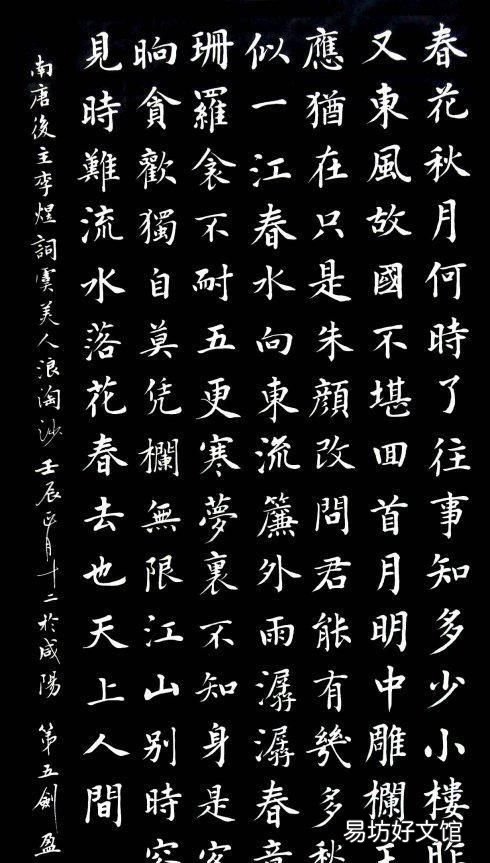 春花秋月何時了往事知多少小樓昨
又東風故國不堪回首月明中雕欄玉
應猶在只是朱顏改問君能有幾多愁
似一江春水向東流簾外雨潺潺春意
珊羅衾不耐五更寒夢裏不知身是客
晌貪歡獨自莫凭欄無限江山別時容
見時難流水落花春去也天上人間
南唐後主李煜詞虞美人浪淘沙 壬辰正月十二於咸陽 第五劍盈
易坊好文馆